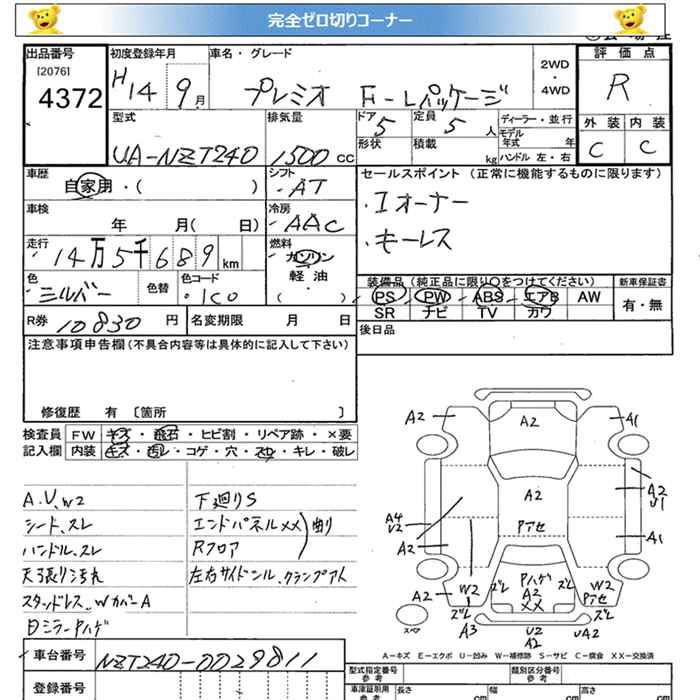 完全ゼロ切りコーナー
出品番号 [2076] 4372
初度登録年月 H14 9月
車名・グレード プレミオ F-Lパッケージ
2WD・4WD
評価点 R
外装 内装
C C
型式 UA-NZT240
排気量 1500cc
ドア 5 定員 5人
形状 積載 kg
ディーラー・並行
モデル年式 年
ハンドル 左・右
車歴 自家用・( )
シフト ・AT
セールスポイント (正常に機能するものに限ります)
・1オーナー
・キーレス
車検 年 月( 日)
冷房 ・AAC
走行 14万5千689km
燃料 ・ガソリン
軽油
・( )
色 ・シルバー
色替
色コード ・1C0
装備品 (純正品に限り○をつけてください)
PS PW ABS エアB AW
SR ナビ TV カワ
新車保証書 有・無
R券 10830円
名変期限 月 日
後日品
注意事項申告欄 (不具合内容等は具体的に記入して下さい)
修復歴 有 〔箇所 〕
検査員記入欄
FW キズ・飛石・ヒビ割・リペア跡・×要
内装 キズ・汚レ・コゲ・穴・スレ・キレ・破レ
A.U、W2
シード、スレ
ハンドル、スレ
天張り汚れ
スタッドレス、WカバーA
日ミラーPハゲ
下廻りS
エンドパネルXX
Rフロア
曲り
左右サイドシル、クランプアト
A2 A2 A1
A2 U1
A4 U2
A2
A2
Pアセ
A1
A2 W2 ズレ Pハゲ A2 XX ズレ W2 Pアセ
ズレ A3
U2 A2
ズレ UA2
スペア
A-キズ E-エクボ U-凹み W-補修跡 S-サビ C-腐食 XX-交換済
車台番号 NZT240-0029811
登録番号
型式指定番号 参考
類別区分番号 参考
車庫証明用 参考
長さ cm 幅 cm 高さ cm